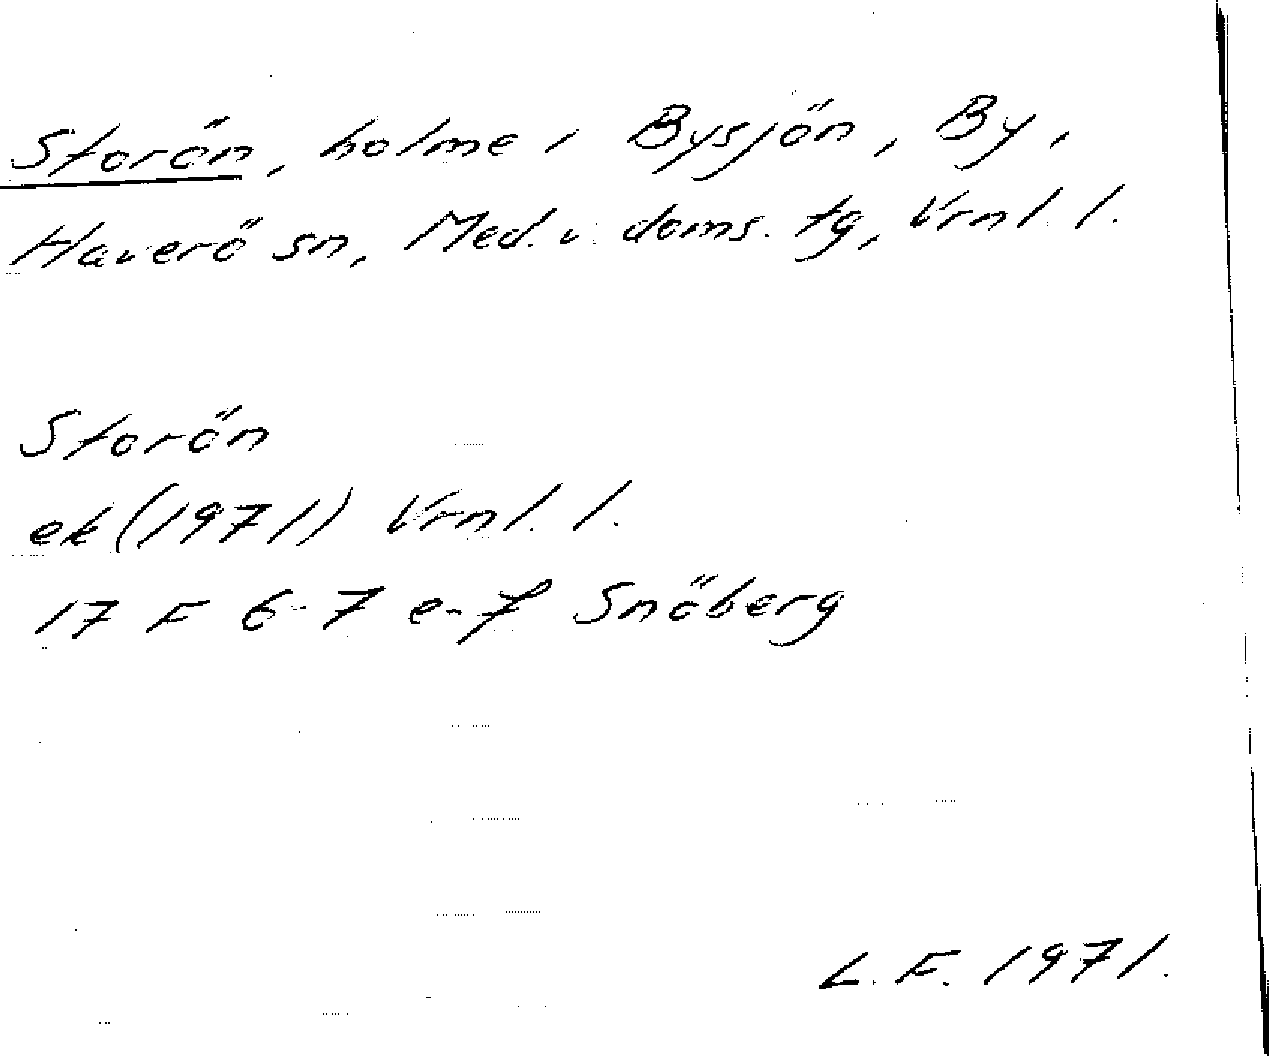 Storön, holme i Bysjön, By,
Haverö sn, Med. v. doms. tg, Vrnl. l.
Storön
ek (1971) Vrnl. l.
17 F 6-7 e-f Snöberg
L. F. 1971.